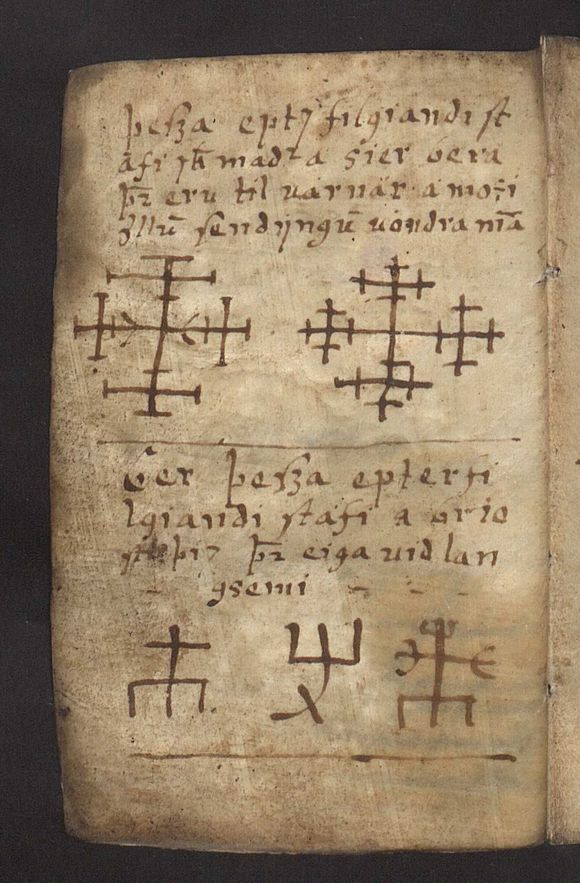 þessa epter filgiandi st
afi skal madr a sier bera
þr eru til varnar a moti
øllū sendijngū vondra mā
Ger þessa epterfi
lgiandi stafi a brio
st þier þr eiga vid lan
gsemi